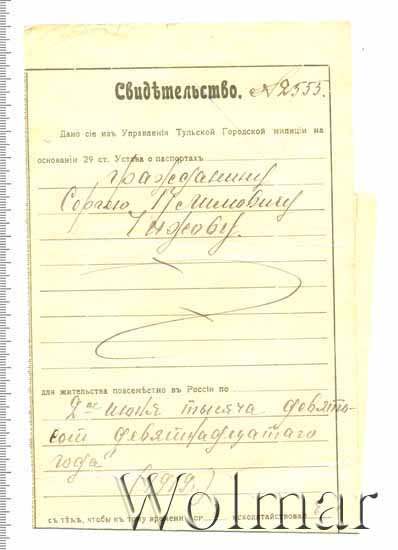 Свидѣтельство. № 2555.
Дано сіе изъ Управленія Тульской Городской милиціи на
основаніи 29 ст. Устава о паспортахъ
гражданину
Сергѣю Климовичу
Чижову.
для жительства повсемѣстно въ Россіи по
2ое июня тысяча девять-
сот девятнадцатаго
года
(1919 г.)
съ тѣмъ, чтобы къ тому времени
исходатайствовал
Wolmar